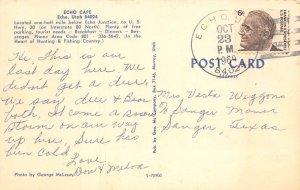 ECHO CAFE
Echo, Utah 84024
Located one-half mile below Echo Junction, on U. S.
Hwy. 30 (or Interstate 80 North). Plenty of free
parking, tourist needs • Breakfast • Dinners • Bev-
erages. Phone Area Code 801 336-5642. (In the
Heart of Hunting & Fishing Country.)
Hi This is our
last day here. We
didn't get a deer.
We saw deer & Bear
both, It came a snow
Storm on our way
up here, Sure has
been Cold.
Love
Don &
Photo by George McLean
ECHO, UTAH
OCT
23
P.M.
1969
84024
6c
POST CARD
Mrs Vesta Wiggons
Sanger Manor
Sanger, Texas